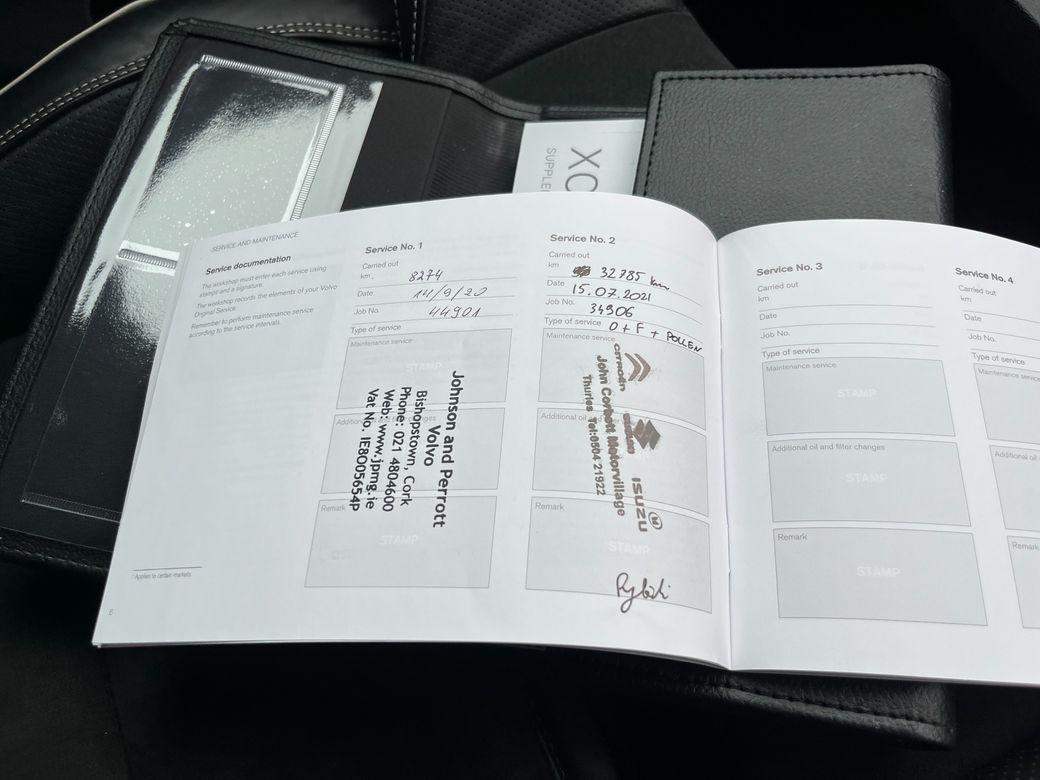 XC
SUPPLE
SERVICE AND MAINTENANCE
Service documentation
The workshop must enter each service using
stamps and a signature.
The workshop records the elements of your Volvo
Original Service.
Remember to perform maintenance service
according to the service intervals.
Applies to certain markets.
6
Service No. 1
Carried out
km 8274
Date 14/9/20
Job No. 44901
Type of service
Maintenance service
STAMP
Additional oil and filter changes
Remark
STAMP
Johnson and Perrott
Volvo
Bishopstown, Cork
Phone: 021 4804600
Web: www.jpmg.ie
Vat No. IE8O05654P
Service No. 2
Carried out
km 32785 km
Date 15.07.2021
Job No. 34906
Type of service O + F + POLLEN
Maintenance service
Additional oil
Remark
STAMP
CITROËN ISUZU
John Corbett Motorvillage
Thurles Tel:0504 21922
Service No. 3
Carried out
km
Date
Job No.
Type of service
Maintenance service
STAMP
Additional oil and filter changes
STAMP
Remark
STAMP
Service No. 4
Carried out
km
Date
Job No.
Type of service
Maintenance service
Additional oil
Remark